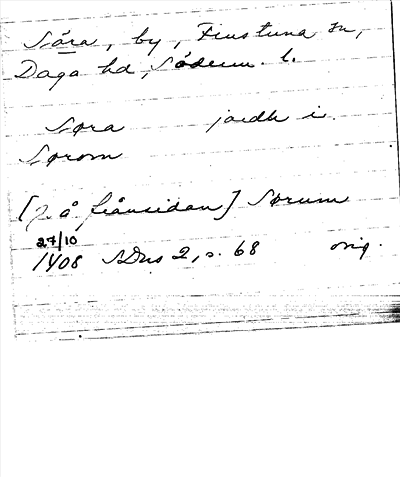 Såra, by, Finstuna sn,
Daga hd, Söderm. l.
Sora jordh i
Sorom
[p. å frånsidan] Sorum
27/10
1408 SDns 2, s. 68 orig.